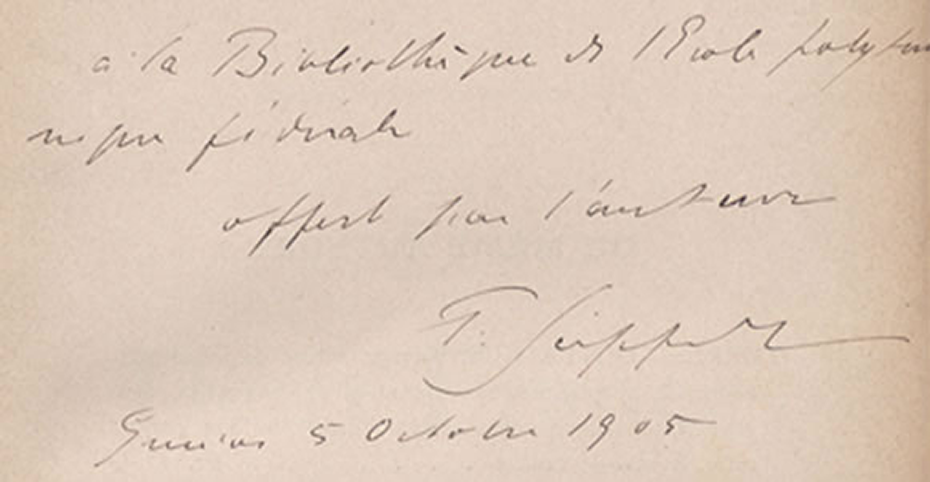 à la Bibliothèque de l'Ecole polytech
nique fédérale
offert par l'auteur
P. Seippel
Genève 5 Octobre 1905